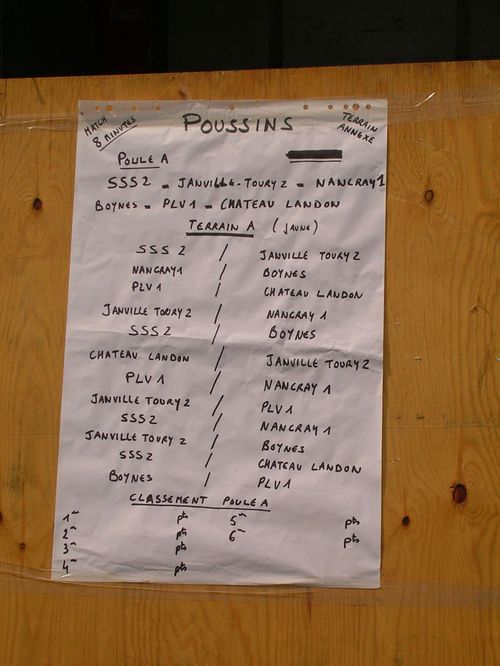 MATCH 8 MINUTES
POUSSINS
TERRAIN ANNEXE
POULE A
SSS2 = JANVILLE-TOURY 2 = NANCRAY 1
BOYNES = PLV 1 = CHATEAU LANDON
TERRAIN A (JAUNE)
SSS 2 / JANVILLE TOURY 2
NANCRAY 1 / BOYNES
PLV 1 / CHATEAU LANDON
JANVILLE TOURY 2 / NANCRAY 1
SSS 2 / BOYNES
CHATEAU LANDON / JANVILLE TOURY 2
PLV 1 / NANCRAY 1
JANVILLE TOURY 2 / PLV 1
SSS 2 / NANCRAY 1
JANVILLE TOURY 2 / BOYNES
SSS 2 / CHATEAU LANDON
BOYNES / PLV 1
CLASSEMENT POULE A
1er pts 5e pts
2e pts 6e pts
3e pts
4e pts